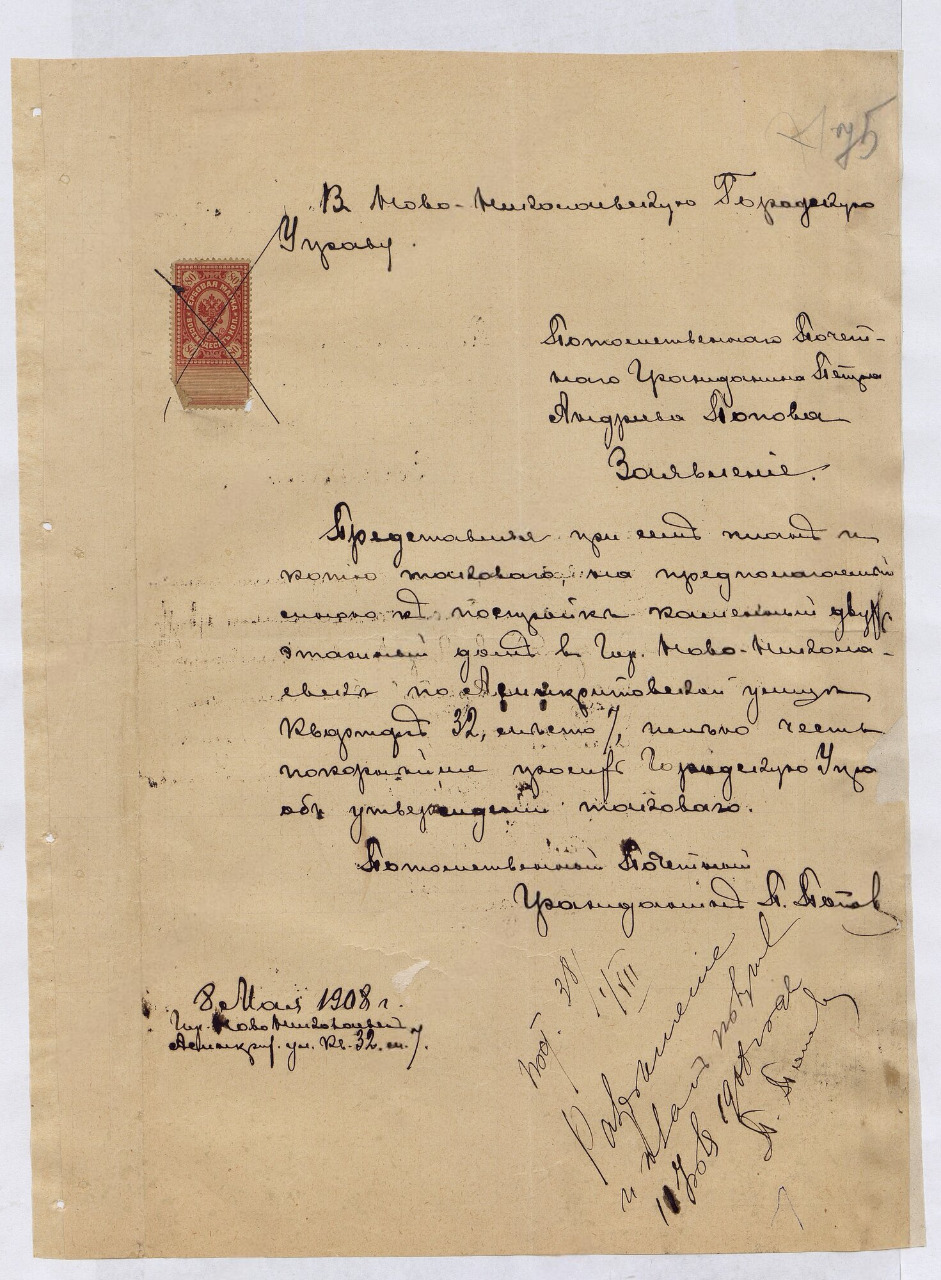 75
В Ново-Николаевскую Городскую
Управу.
80 80
ГЕРБОВАЯ МАРКА
ВОСЕМЬДЕСЯТЪ КОП.
Потомственнаго Почет-
наго Гражданина Петра
Андриева Попова
Заявление.
Представляя при семъ планъ и
копию таковаго, на предполагаемый
мною къ постройкѣ каменный двухъ
этажный домъ в Гор. Ново-Никола-
евскѣ по Асинкритовской улицѣ
Кварталъ 32, мѣсто 7, имѣю честь
покорнѣйше просить Городскую Упра
объ утверждении таковаго.
Потомственный Почетный
Гражданинъ П. Попов
8 Мая 1908 г.
Гор. Ново Николаевск
Асинкриф. ул. Кв. 32. м. 7.
38
1/VII
Разрешение
и план получил
1908 года
П. Попов